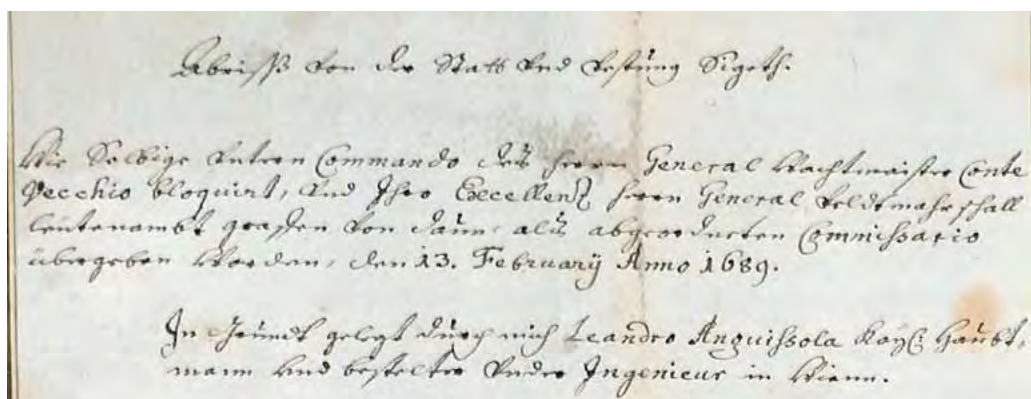 Abrisß von der Statt vnd Vestung Sigeth.
Wie Selbige vntern Commando des herrn General Wachtmeister Conte
Vecchio bloquirt, vnd Ihro Excellenz herrn General Veldtmahrschall
leutenambt graffen von Daun, als abgeordneten Commissario
übergeben worden, den 13. February Anno 1689.
In Grundt gelegt durch mich Leandro Anguissola Kayl: Haubt,
mann vnd bestelter vnder Ingenieur in Wienn.